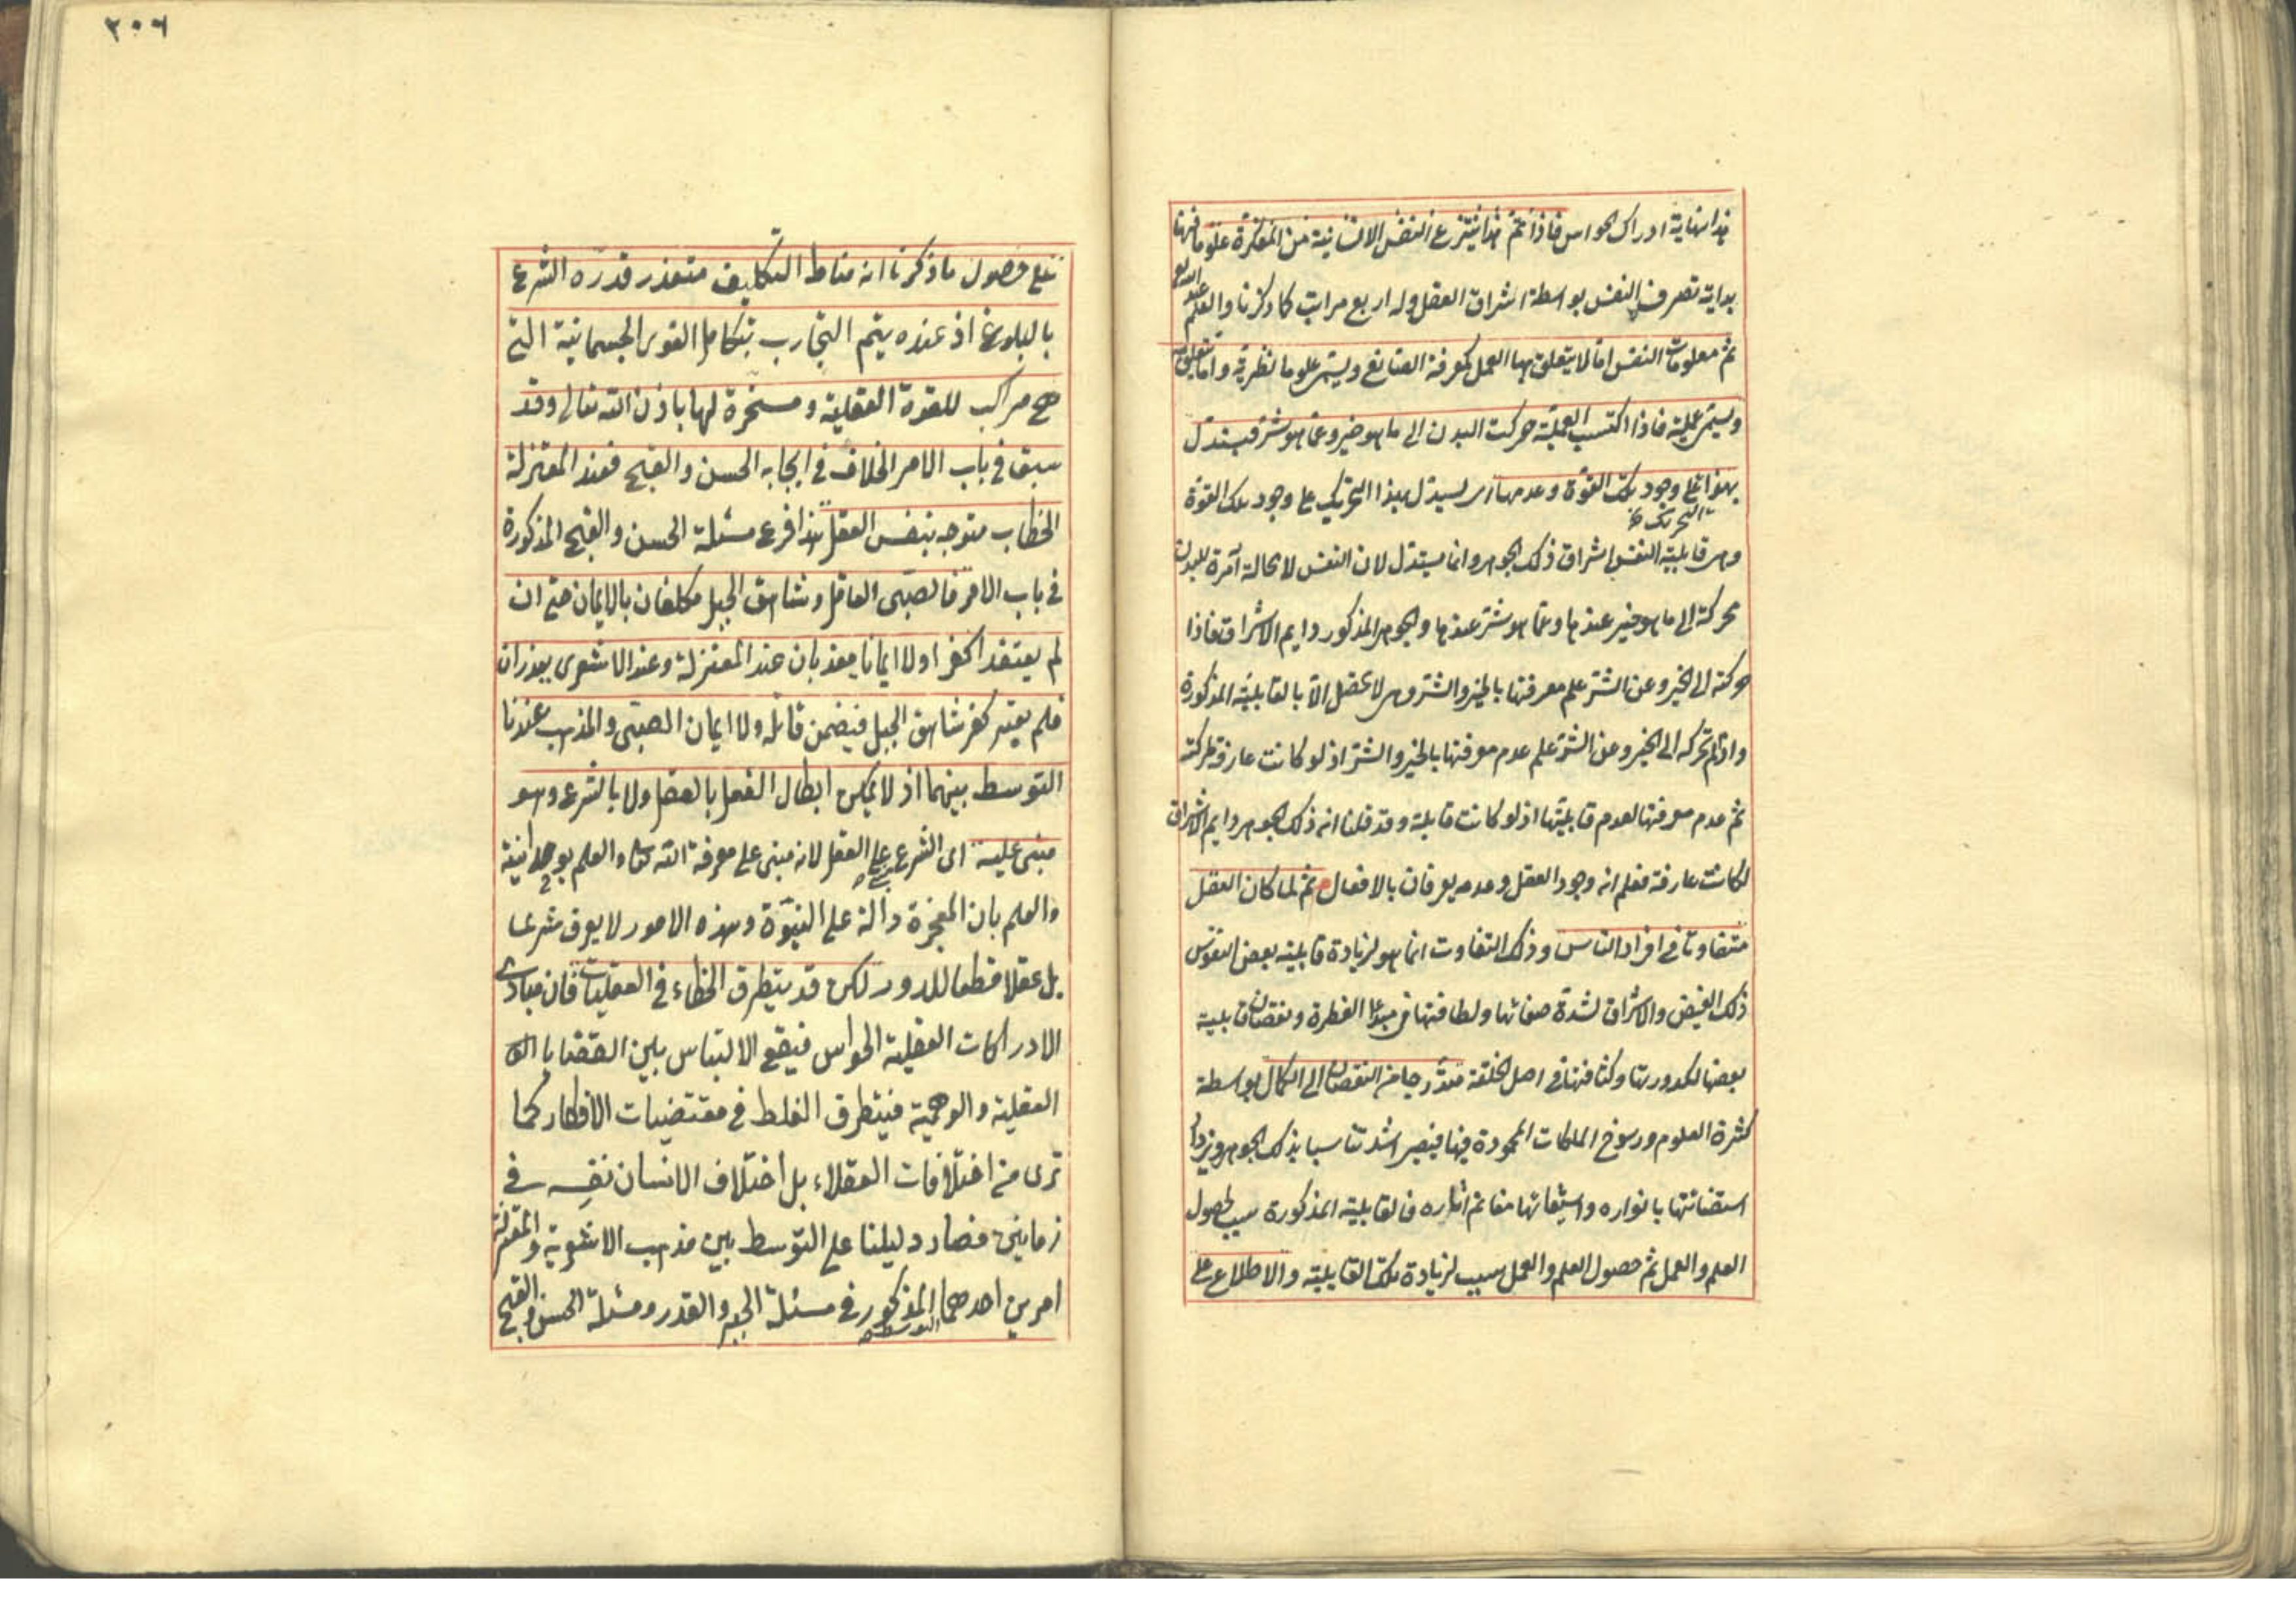 هذا نهاية ادراك الحواس فاذا تم هذا ينتزع النفس الانسانية من المفكرة علوما فهذا
بداية تصرف النفس بواسطة اشراق العقل وله اربع مراتب كما ذكرنا والعلم عند الله تع
ثم معلومات النفس اما لا يتعلق بها العمل كمعرفة الصانع ويسمى علوما نظرية واما يتعلق
ويسمى عملية فاذا اكتسب العملية حركت البدن الى ما هو خير وعما هو شر فيستدل
بهذا على وجود تلك القوة وعدمها اى يستدل بهذا التحريك على وجود تلك القوة
التحريك
وهى قابلية النفس اشراق ذلك الجوهر وانما يستدل لان النفس لا محالة آمرة للبدن
محركة الى ما هو خير عندها وعما هو شر عندها والجوهر المذكور دايم الاشراق فاذا
حركته الى الخير وعن الشر علم معرفتها بالخير والشر وهى لا تحصل الا بالقابلية المذكورة
واذا لم تحركه الى الخير وعن الشر علم عدم معرفتها بالخير والشر اذ لو كانت عارفة لحركته
ثم عدم معرفتها لعدم قابليتها اذ لو كانت قابلة وقد قلنا انه ذلك الجوهر دايم الاشراق
لكانت عارفة فعلم انه وجود العقل وعدمه يعرفان بالافعال ثم لما كان العقل
متفاوتا فى افراد الناس وذلك التفاوت انما هو لزيادة قابلية بعض النفوس
ذلك الفيض والاشراق لشدة صفائها ولطافتها فى مبدأ الفطرة ونقصان قابلية
بعضها لكدورتها وكثافتها فى اصل الخلقة متدرجا من النقصان الى الكمال بواسطة
كثرة العلوم ورسوخ الملكات المحمودة فيها فيصير اشد تناسبا بذلك الجوهر ويزداد
استضائتها بانواره واستفائها مغانم اثاره فالقابلية المذكورة سبب لحصول
العلم والعمل ثم حصول العلم والعمل سبب لزيادة تلك القابلية والاطلاع على
٢٠٦
على حصول ما ذكرنا انه مناط التكليف متعذر قدره الشرع
بالبلوغ اذ عنده يتم التجارب بتكامل القوى الجسمانية التى
هى مراكب للقوة العقلية ومسخرة لها باذن الله تعالى وقد
سبق فى باب الامر الخلاف فى ايجابه الحسن والقبح فعند المعتزلة
الخطاب متوجه بنفس العقل هذا فرع مسئلة الحسن والقبح المذكورة
فى باب الامر فالصبى العاقل وشاهق الجبل مكلفان بالايمان حتى ان
لم يعتقد اكفرا ولا ايمانا يعذبان عند المعتزلة وعند الاشعرى يعذران
فلم يعتبر كفر شاهق الجبل فيضمن قاتله ولا ايمان الصبى والمذهب عندنا
التوسط بينهما اذ لا يمكن ابطال العقل بالعقل ولا بالشرع وهو
مبنى عليه اى الشرع مبنى على العقل لانه مبنى على معرفة الله تعالى والعلم بوحدانية
والعلم بان المعجزة دالة على النبوة وهذه الامور لا يعرف شرعا
بل عقلا قطعا للدور لكن قد يتطرق الخطاء فى العقليات فان مبادى
الادراكات العقلية الحواس فيقع الالتباس بين القضايا
العقلية والوهمية فيتطرق الغلط فى مقتضيات الافكار كما
ترى من اختلافات العقلاء بل اختلاف الانسان نفسه فى
زمانين فصار دليلنا على التوسط بين مذهب الاشعرية والمعتزلة
امرين احدهما التوسط المذكور فى مسئلة الجبر والقدر ومسئلة الحسن والقبح